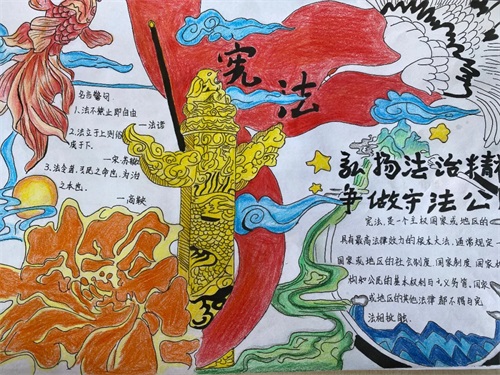 宪法
名言警句
1、法不禁止即自由
—法谚
2、法立于上则俗
成于下。
—宋·苏辙
3、法令者,民之命也,为治
之本也。
—商鞅
弘扬法治精
争做守法公
宪法是一个主权国家或地区的
具有最高法律效力的根本大法,通常规定一
国家或地区的社会制度、国家制度、国家机
构和公民的基本权利与义务等。国家
或地区的其他法律都不得与宪
法相抵触。